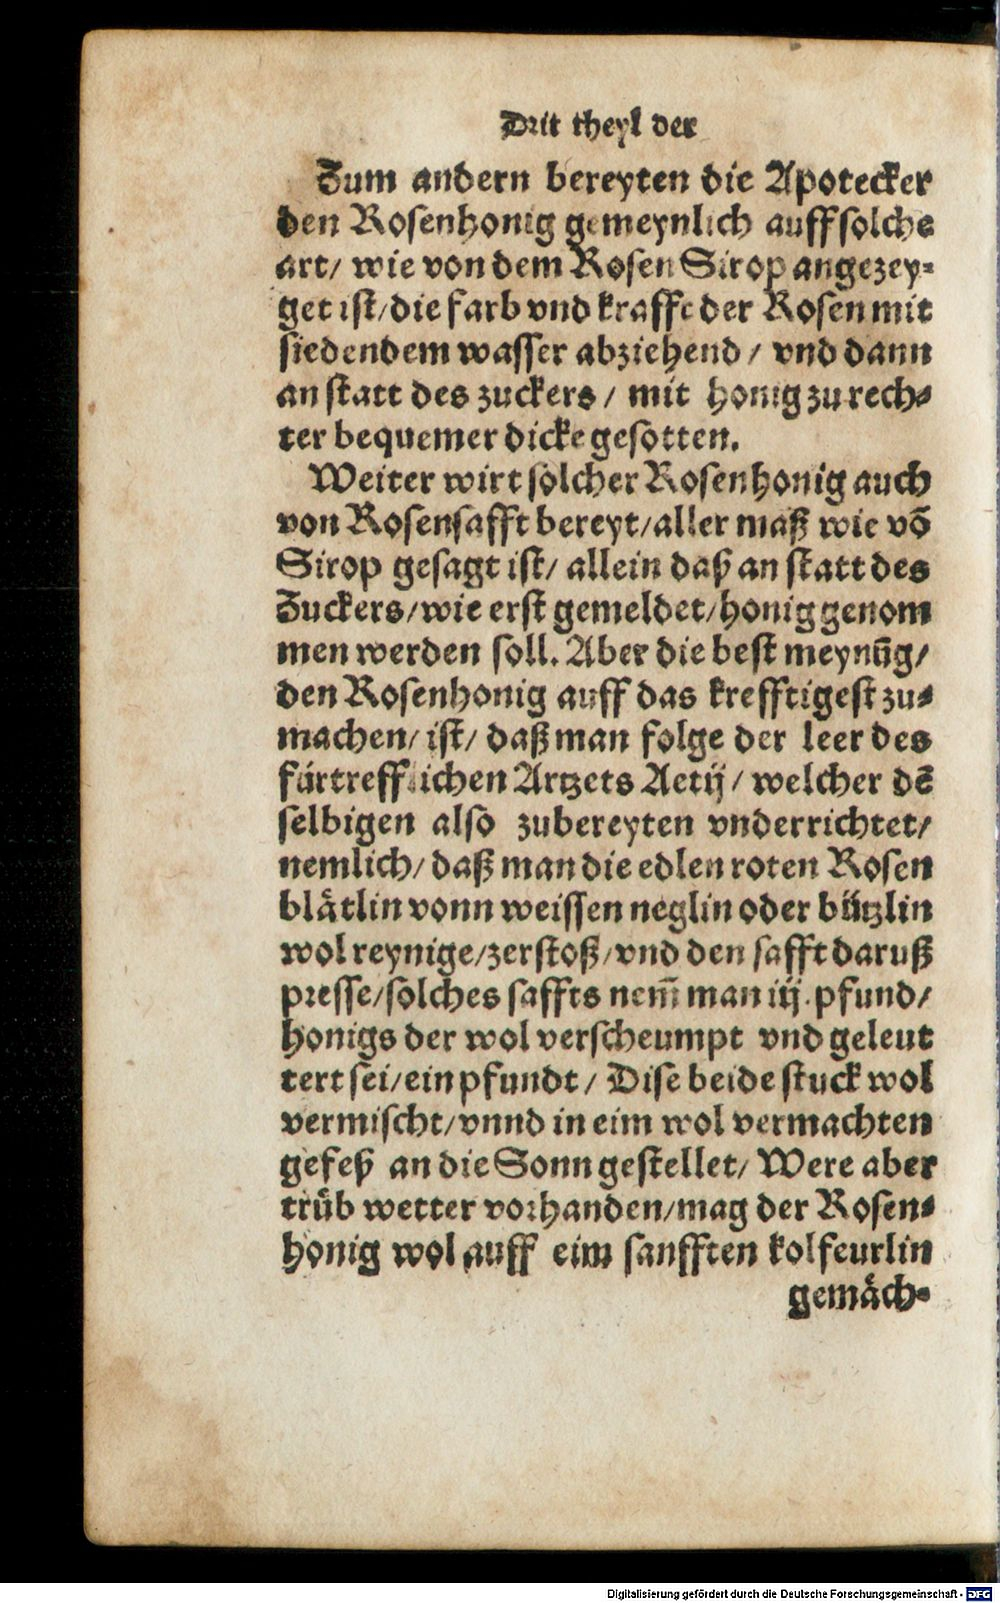 Drit theyl der
Zum andern bereyten die Apotecker
den Rosenhonig gemeynlich auff solche
art/ wie von dem Rosen Sirop angezey-
get ist/ die farb vnd krafft der Rosen mit
siedendem wasser abziehend/ vnd dann
an statt des zuckers/ mit honig zu rech-
ter bequemer dicke gesotten.
Weiter wirt solcher Rosenhonig auch
von Rosensafft bereyt/ aller maß wie võ
Sirop gesagt ist/ allein daß an statt des
Zuckers/ wie erst gemeldet/ honig genom
men werden soll. Aber die best meynũg/
den Rosenhonig auff das krefftigest zu-
machen/ ist/ daß man folge der leer des
fürtrefflichen Artzets Aetij/ welcher dẽ
selbigen also zubereyten vnderrichtet/
nemlich/ daß man die edlen roten Rosen
blåtlin vonn weissen neglin oder bützlin
wol reynige/ zerstoß/ vnd den safft daruß
presse/ solches saffts nem̃ man iij. pfund/
honigs der wol verscheumpt vnd geleut
tert sei/ ein pfundt/ Dise beide stuck wol
vermischt/ vnnd in eim wol vermachten
gefeß an die Sonn gestellet/ Were aber
trüb wetter vorhanden/ mag der Rosen-
honig wol auff eim sanfften kolfeurlin
gemåch-
Digitalisierung gefördert durch die Deutsche Forschungsgemeinschaft - DFG